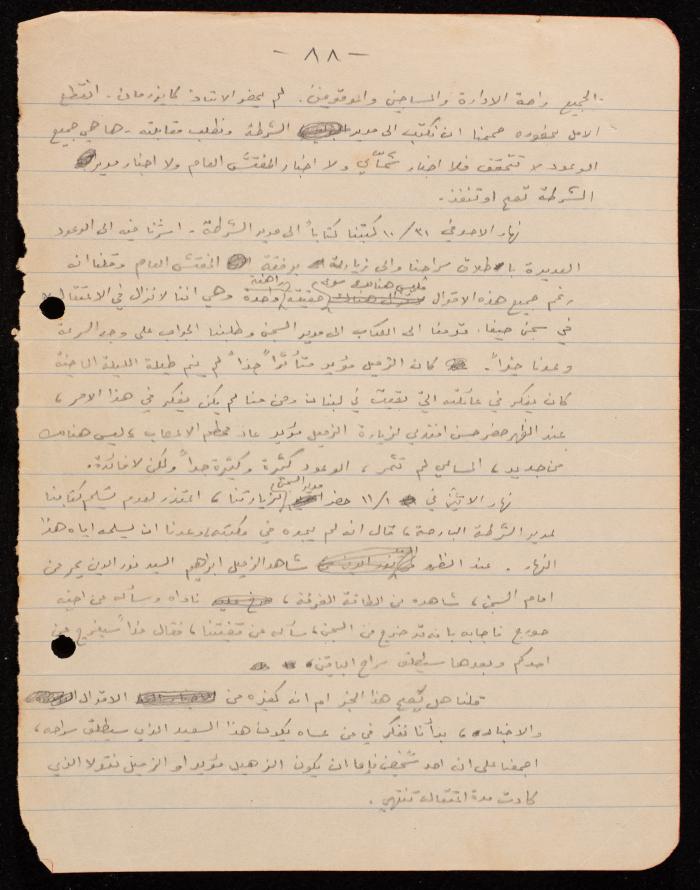 - ٨٨ -
الجميع راحة الادارة والمساجين والموقوفين. لم يحضر الاستاذ كابزرمان. انقطع
الامل بحضوره صممنا ان نكتب الى مدير الشرطة ونطلب مقابلته. ها هي جميع
الوعود لا تتحقق فلا اخبار شمّاي ولا اخبار المفتش العام ولا اخبار مدير
الشرطة تصح او تنفذ.
نهار الاحد في ٣١/١٠ كتبنا كتاباً الى مدير الشرطة. اشرنا فيه الى الوعود
العديدة باطلاق سراحنا والى زيارته برفقة المفتش العام وقلنا انه
رغم جميع هذه الاقوال فليس هنالك سوى حقيقة واحدة راهنة وهي اننا لا نزال في الاعتقال
في سجن حيفا. قدمنا الى الكتاب الى مدير السجن وطلبنا الجواب على وجه السرعة
وعدنا خيراً. كان الزميل مؤيد متأثراً جداً لم ينم طيلة الليلة الماضية
كان يفكر في عائلته التي بقيت في لبنان ومن منا لم يكن يفكر في هذا الامر،
عند الظهر حضر حسن افندي لزيارة الزميل مؤيد عاد محطم الاعصاب، ليس هنالك
من جديد، المساعي لم تثمر، الوعود كثيرة وكثيرة جداً ولكن لا فائدة.
نهار الاثنين في ١/١١ حضر مدير السجن لزيارتنا، اعتذر لعدم تسليم كتابنا
لمدير الشرطة البارحة، قال انه لم يجده في مكتبه، وعدنا ان يسلمه اياه هذا
النهار. عند الظهر شاهد الزميل ابراهيم السيد نور الدين يمر من
امام السجن، شاهده من الطاقة الغرفة، ناداه وسأله عن اخيه
جورج فاجابه بانه قد خرج من السجن، سأله عن قضيتنا، فقال غداً سيفرج عن
احدكم وبعدها سيطلق سراح الباقين.
قلنا هل يصح هذا الخبر ام انه كغيره من الاقوال
والاخبار، بدأنا نفكر في من عساه يكون هذا السعيد الذي سيطلق سراحه،
اجمعنا على ان احد شخصين فاما ان يكون الزميل مؤيد او الزميل نقولا الذي
كادت مدة اعتقاله تنتهي.